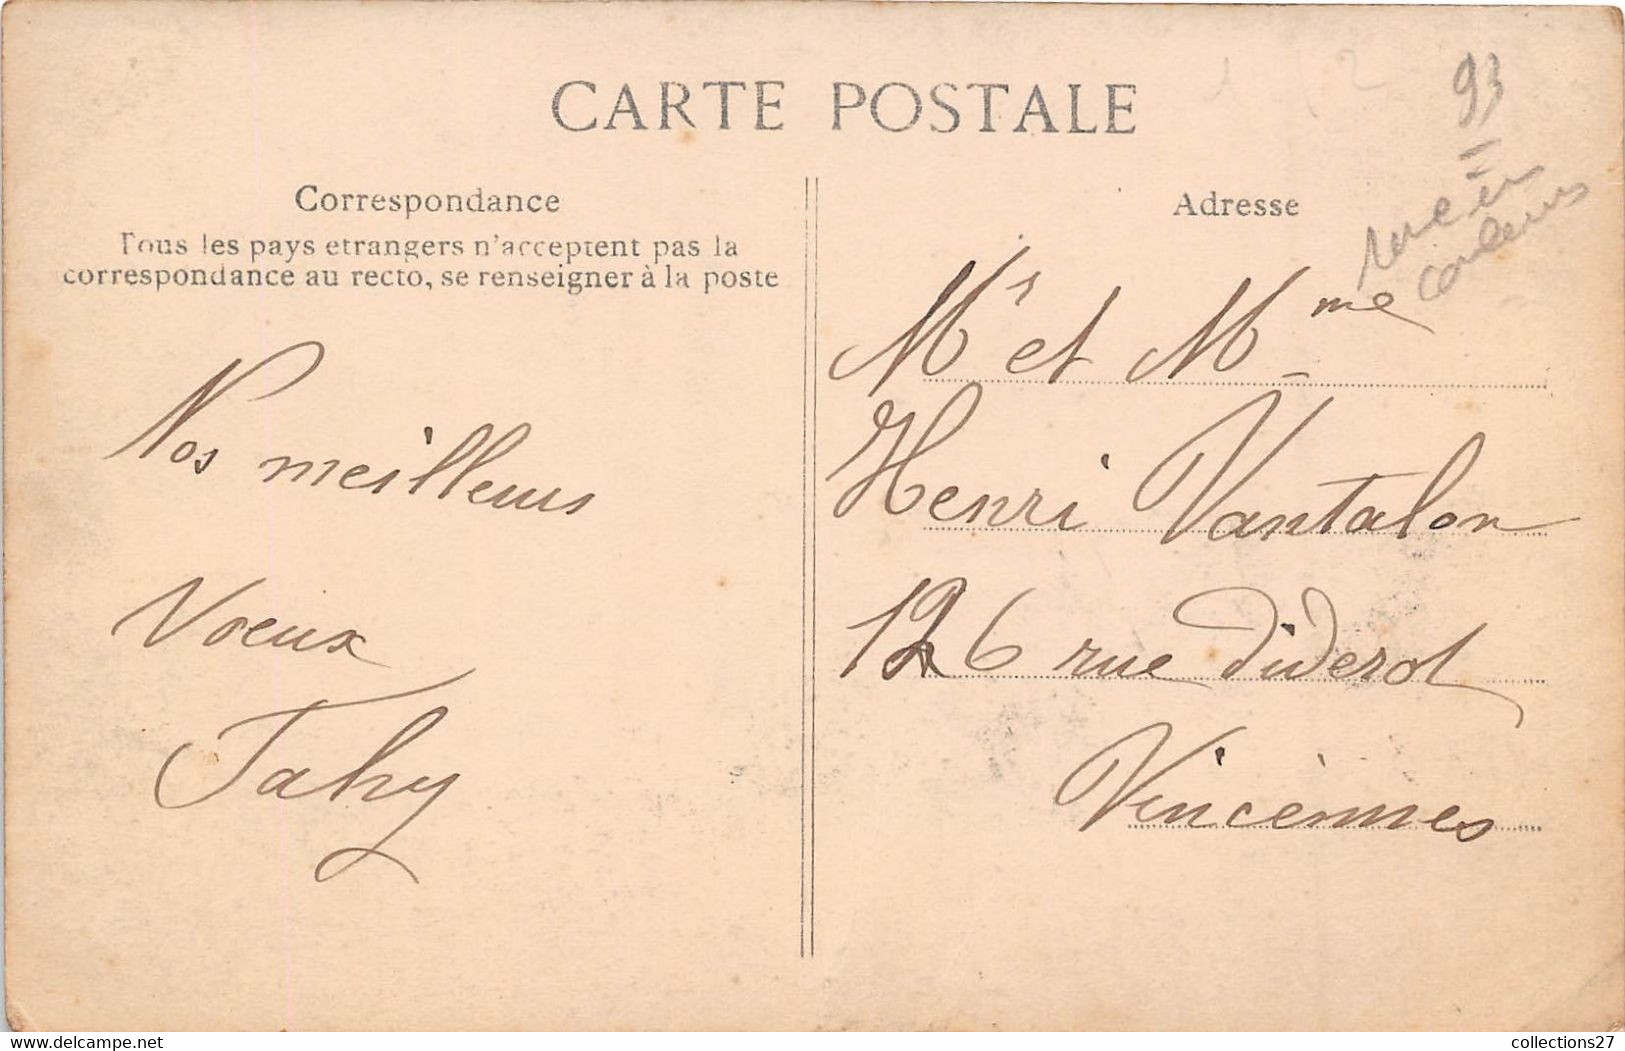 CARTE POSTALE
93
rare en
couleurs
Correspondance
Tous les pays etrangers n'acceptent pas la
correspondance au recto, se renseigner à la poste
Nos meilleurs
Voeux
Jahy
Adresse
Mr et Mme
Henri Vantalon
126 rue Diderot
Vincennes
collections27